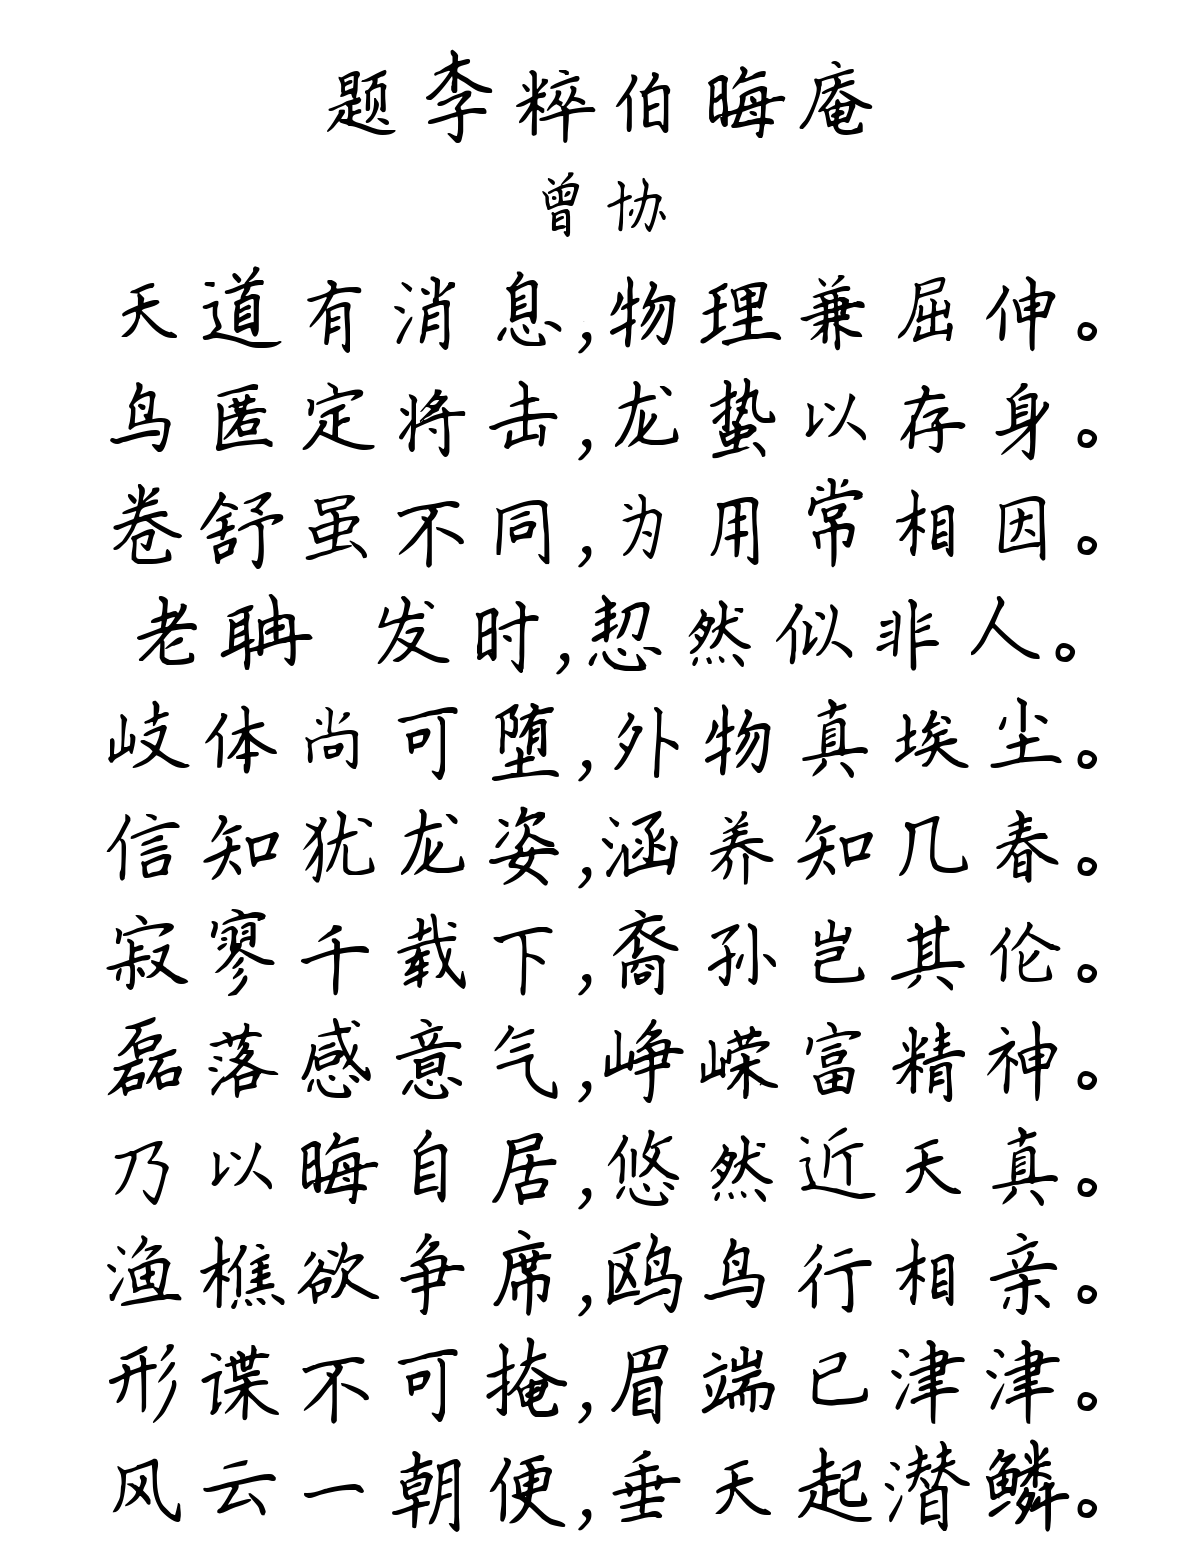 题李粹伯晦庵
曾协
天道有消息,物理兼屈伸。
鸟匿定将击,龙蛰以存身。
卷舒虽不同,为用常相因。
老聃 发时,恝然似非人。
岐体尚可堕,外物真埃尘。
信知犹龙姿,涵养知几春。
寂寥千载下,裔孙岂其伦。
磊落感意气,峥嵘富精神。
乃以晦自居,悠然近天真。
渔樵欲争席,鸥鸟行相亲。
形谍不可掩,眉端已津津。
风云一朝便,垂天起潜鳞。